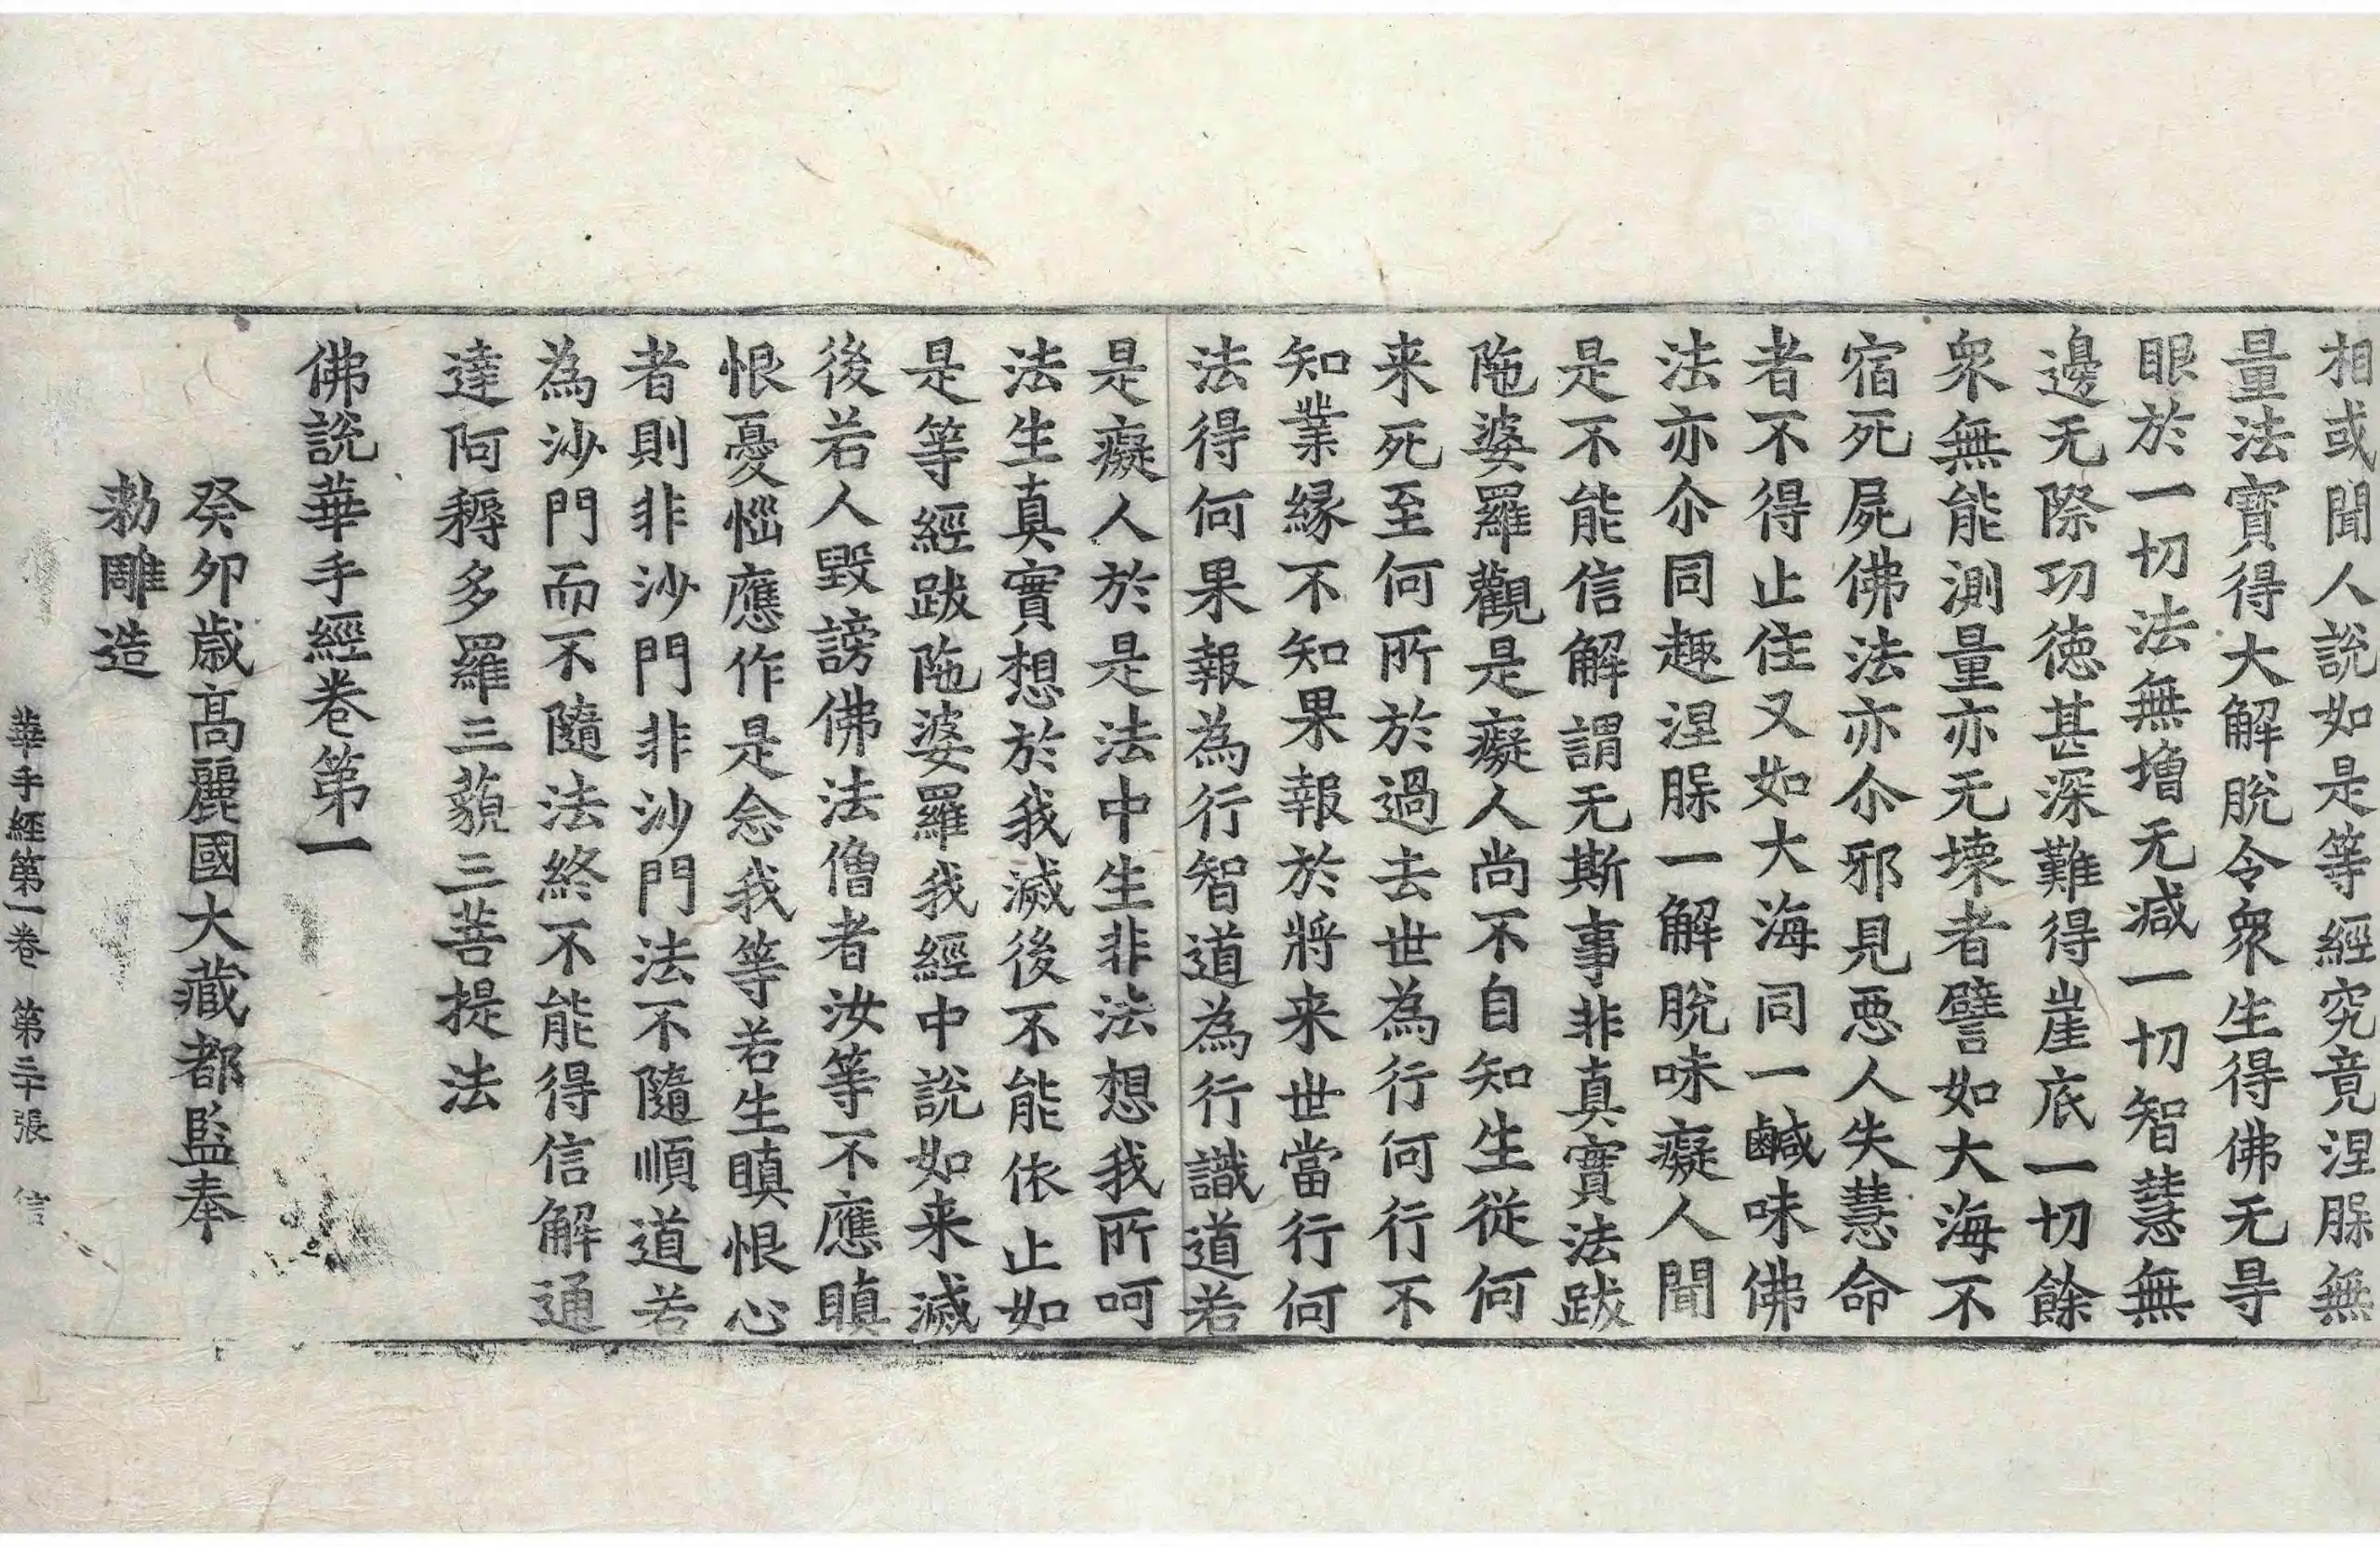 相或聞人說如是等經究竟涅脲無
量法寶得大解脫令衆生得佛无㝵
眼於一切法無增无減一切智慧無
邊无際功德甚深難得崖底一切餘
衆無能測量亦无壞者譬如大海不
宿死屍佛法亦尒邪見惡人失慧命
者不得止住又如大海同一鹹味佛
法亦尒同趣涅脲一解脫味癡人聞
是不能信解謂无斯事非真實法跋
陁婆羅觀是癡人尚不自知生從何
来死至何所於過去世為行何行不
知業緣不知果報於將来世當行何
法得何果報為行智道為行識道若
是癡人於是法中生非法想我所呵
法生真實想於我滅後不能依止如
是等經跋陁婆羅我經中說如来滅
後若人毀謗佛法僧者汝等不應瞋
恨憂惱應作是念我等若生瞋恨心
者則非沙門非沙門法不隨順道若
為沙門而不隨法終不能得信解通
達阿耨多羅三藐三菩提法
佛說華手經卷第一
癸卯歲高麗國大藏都監奉
勅雕造
華手經第一卷 第三十張 信